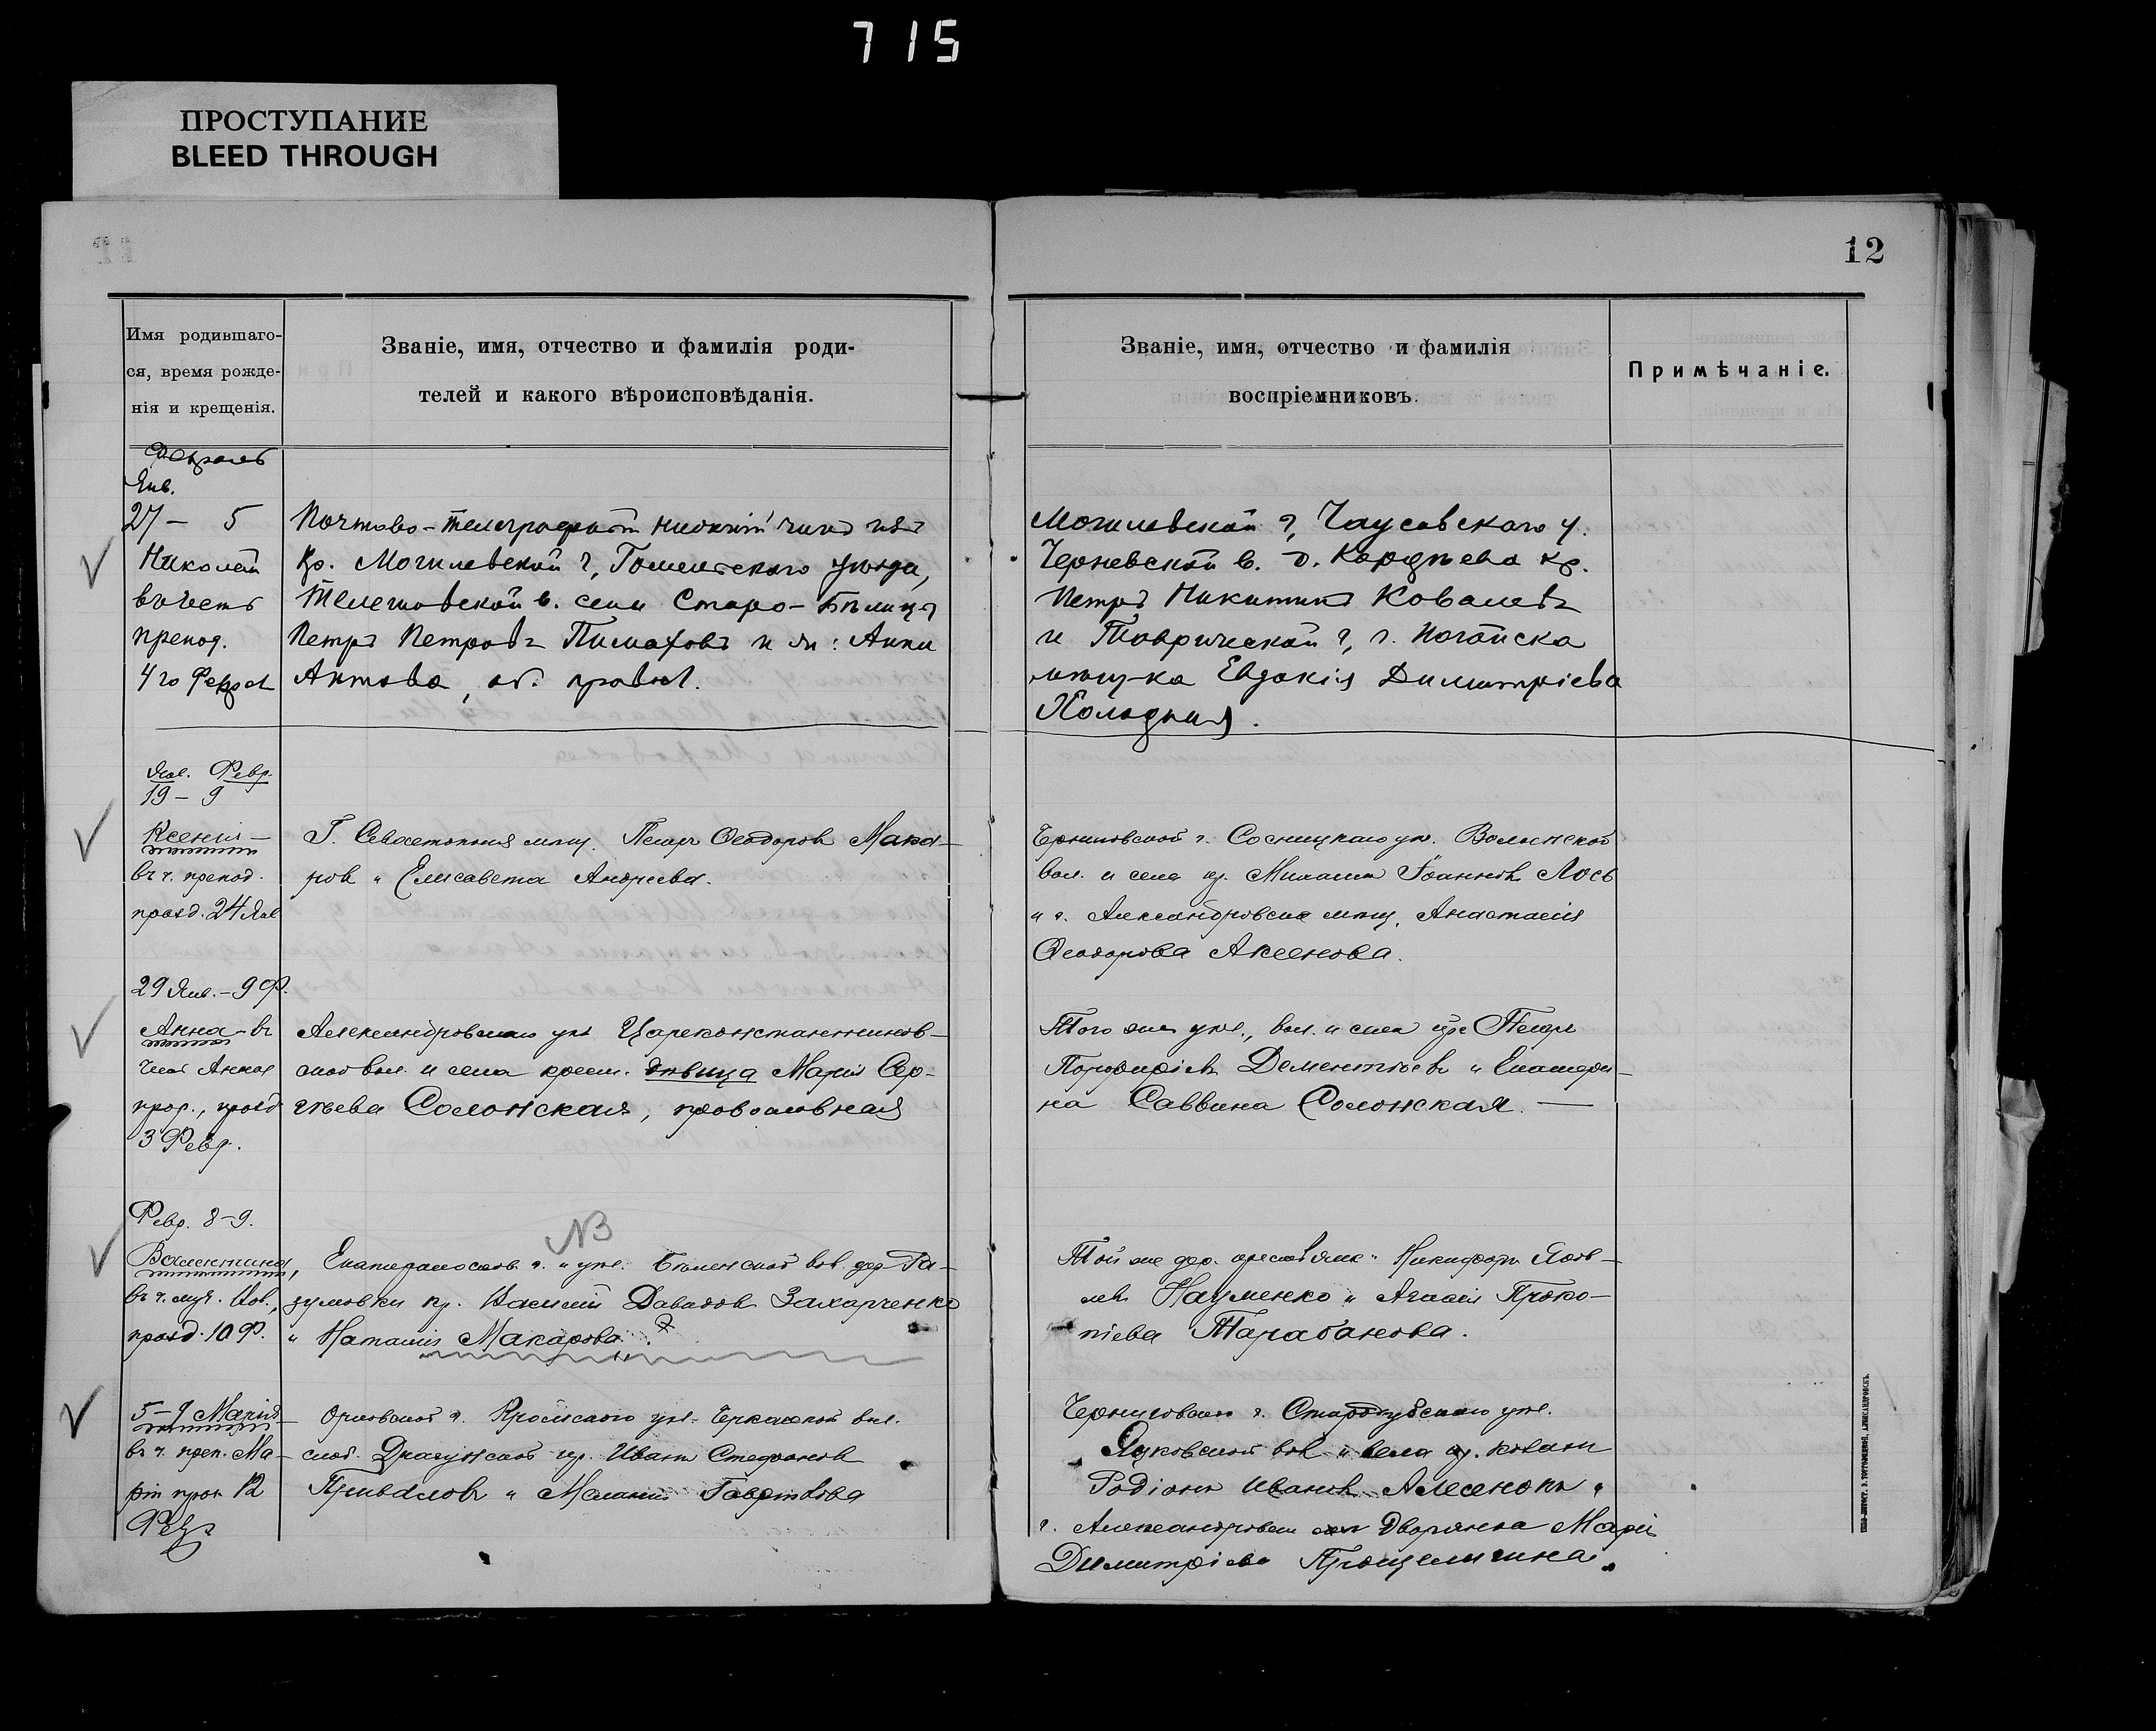 715
ПРОСТУПАНИЕ
BLEED THROUGH
12
Имя родившаго-
ся, время рожде-
нія и крещенія.
Званіе, имя, отчество и фамилія роди-
телей и какого вѣроисповѣданія.
Званіе, имя, отчество и фамилія
воспріемниковъ.
Примѣчаніе.
Февраль
Янв.
27 – 5
Николай
въ честь
препод.
4го Февраля
Почтово-телеграфный нижній чинъ изъ
Кр. Могилевской г., Гомельского уѣзда,
Телешовской в. села Старо-Бѣлица
Петръ Петровъ и : Анна
, об. правосл.
Могилевской г., Чаусовскаго у.
Черневской в. д. кр.
Петръ Никитинъ Ковалевъ
и Таврической г., г. Ногайска
Евдокія Димитріева
Холодная.
Янв. Февр.
19 – 9
Ксенія –
въ ч. препод.
празд. 24 Янв
Г. Севастополя мѣщ. Петръ Ѳеодоровъ Мака-
ровъ и Елисавета Андреева.
Черниговской г. Сосницкаго уѣ. Волынской
вол. и села кр. Михаилъ Іоанновъ Лось
и г. Александровска мѣщ. Анастасія
Ѳеодорова Аксенова.
29 Янв. – 9 Ф.
Анна – въ
честь Анны
прор., празд
3 Февр.
Александровскаго уѣз Цареконстантинов-
ской вол. и села крест. дѣвица Марія Сер-
гѣева Солонская, православная
Того же уѣз., вол. и села кре Петръ
Порфиріевъ Дементіевъ и Екатери-
на Саввина Солонская. —
Февр. 8–9.
Валентина,
въ ч. муч. Вал.,
празд. 10 Ф.
NB
Екатеринослав. г. и уѣз. вол. дер. Ра-
зумовки кр. Василій Давидов Захарченко
и Наталія Макарова.
Той же дер. крестьяне: Никифоръ Яков-
левъ Науменко и Агафія Проко-
піева Тарабанова.
5–9 Марія –
въ ч. преп. Ма-
ріи праз 12
Февр
Орловской г. Кромскаго уѣз. Черкаской вол.
слоб. Драгунской кр. Иванъ Стефановъ
Приваловъ и Маланія
Черниговской г. Стародубскаго уѣз.
вол. и села кр. казакъ
Родіонъ Ивановъ Алесенокъ и
г. Александровска дворянка Марія
Димитріева